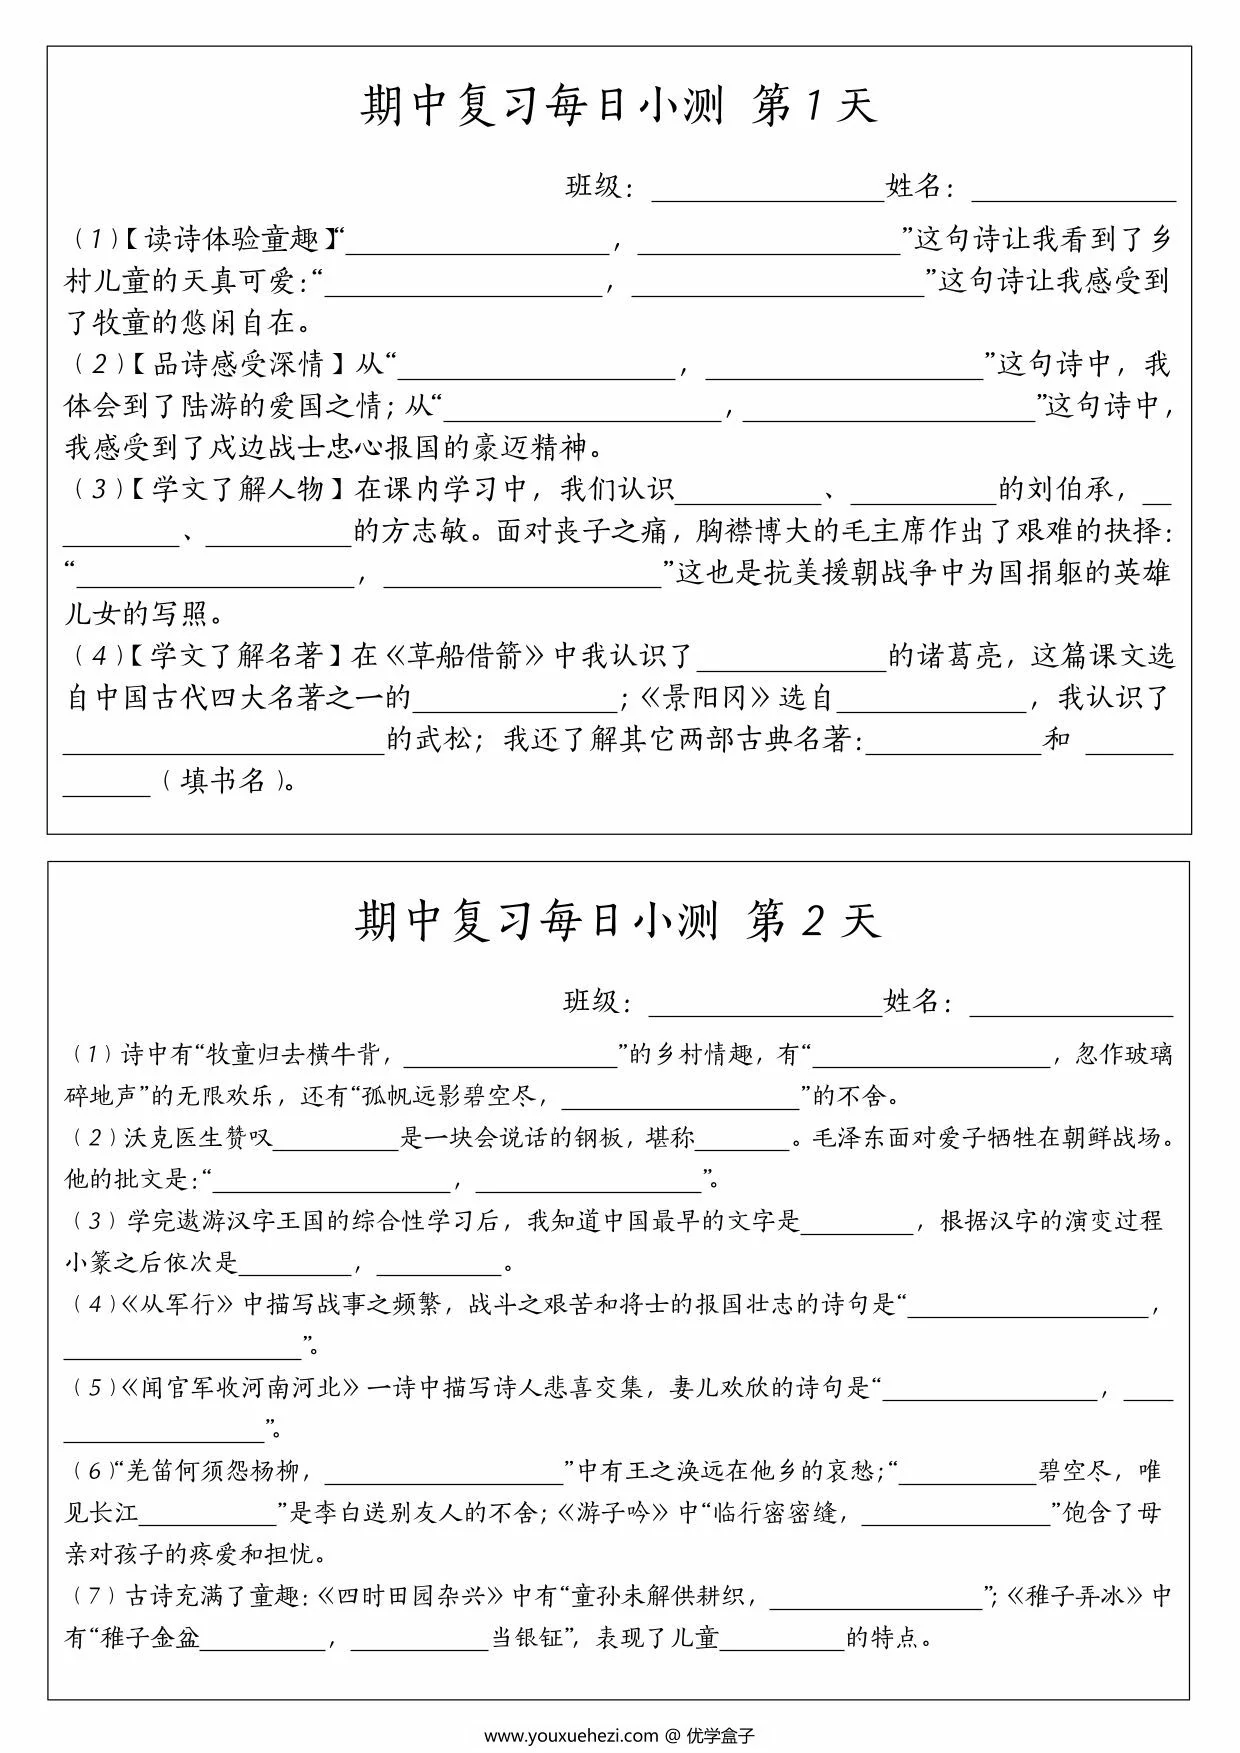 期中复习每日小测 第 1 天
班级：________姓名：________
（1）【读诗体验童趣】“________，________”这句诗让我看到了乡
村儿童的天真可爱：“________，________”这句诗让我感受到
了牧童的悠闲自在。
（2）【品诗感受深情】从“________，________”这句诗中，我
体会到了陆游的爱国之情；从“________，________”这句诗中，
我感受到了戍边战士忠心报国的豪迈精神。
（3）【学文了解人物】在课内学习中，我们认识________、________的刘伯承，__
________、________的方志敏。面对丧子之痛，胸襟博大的毛主席作出了艰难的抉择：
“________，________”这也是抗美援朝战争中为国捐躯的英雄
儿女的写照。
（4）【学文了解名著】在《草船借箭》中我认识了________的诸葛亮，这篇课文选
自中国古代四大名著之一的________；《景阳冈》选自________，我认识了
________的武松；我还了解其它两部古典名著：________和 ____
____（填书名）。
期中复习每日小测 第 2 天
班级：________姓名：________
（1）诗中有“牧童归去横牛背，________”的乡村情趣，有“________，忽作玻璃
碎地声”的无限欢乐，还有“孤帆远影碧空尽，________”的不舍。
（2）沃克医生赞叹________是一块会说话的钢板，堪称________。毛泽东面对爱子牺牲在朝鲜战场。
他的批文是：“________，________”。
（3）学完遨游汉字王国的综合性学习后，我知道中国最早的文字是________，根据汉字的演变过程
小篆之后依次是________，________。
（4）《从军行》中描写战事之频繁，战斗之艰苦和将士的报国壮志的诗句是“________，
________”。
（5）《闻官军收河南河北》一诗中描写诗人悲喜交集，妻儿欢欣的诗句是“________，____
________”。
（6）“羌笛何须怨杨柳，________”中有王之涣远在他乡的哀愁；“________碧空尽，唯
见长江________”是李白送别友人的不舍；《游子吟》中“临行密密缝，________”饱含了母
亲对孩子的疼爱和担忧。
（7）古诗充满了童趣：《四时田园杂兴》中有“童孙未解供耕织，________”；《稚子弄冰》中
有“稚子金盆________，________当银钲”，表现了儿童________的特点。
www.youxuehezi.com @ 优学盒子